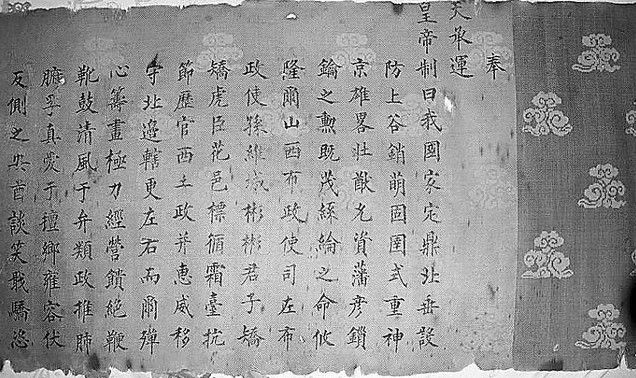 奉
天承運
皇帝制曰我國家定鼎北垂設
防上谷銷萌固圉式重神
京雄畧壯猷允資藩彥鎖
鑰之勲既茂絲綸之命攸
隆爾山西布政使司左布
政使孫維城彬彬君子矯
矯虎臣花邑標循霜臺抗
節歷官西土政并惠威移
守北邊轄更左右而爾殫
心籌畫極力經營鎖絕鞭
靴鼓清風于弁類政推肺
腑孚真愛于鄉雍容伏
反側之酋談笑戢驕恣